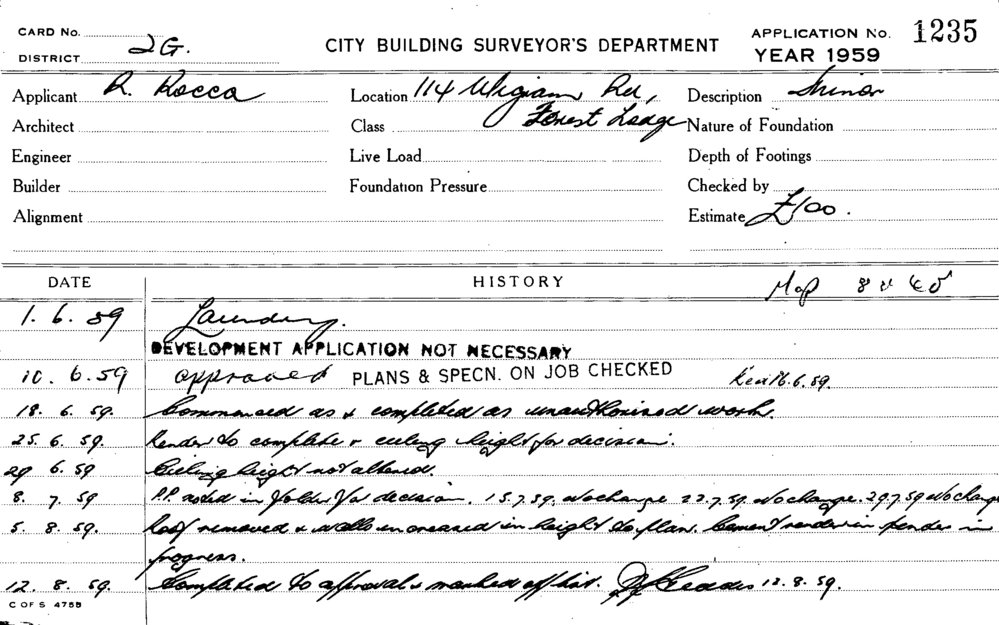 CARD No.
DISTRICT 2G.
CITY BUILDING SURVEYOR'S DEPARTMENT
APPLICATION No. 1235
YEAR 1959
Applicant R. Rocca Location 114 Wigram Rd, Description Minor
Architect Class Forest Lodge Nature of Foundation
Engineer Live Load Depth of Footings
Builder Foundation Pressure Checked by
Alignment Estimate £100.
DATE HISTORY Map 8
1. 6. 59 Laundry.
DEVELOPMENT APPLICATION NOT NECESSARY
10. 6. 59 approved PLANS & SPECN. ON JOB CHECKED 16.6.59.
18. 6. 59. Commenced as & completed as unauthorised work.
25. 6. 59. Render to complete & ceiling height for decision.
29 6. 59 Ceiling height not altered.
8. 7. 59 P.P. noted in folder for decision. 15.7.59. No change 22.7.59. No change. 29.7.59 No change
5. 8. 59. Roof removed & walls increased in height to plan. Cement render in render in
progress.
12. 8. 59. Completed to approval & marked off list. 12.8.59.
C OF S 4755